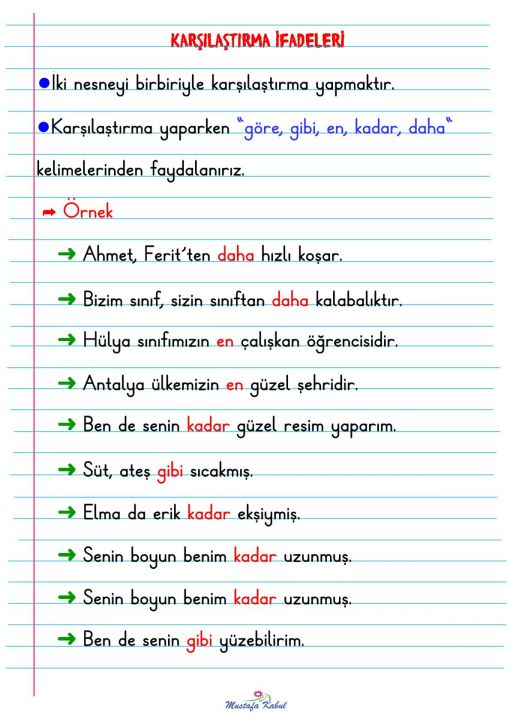 KARŞILAŞTIRMA İFADELERİ
●İki nesneyi birbiriyle karşılaştırma yapmaktır.
●Karşılaştırma yaparken “göre, gibi, en, kadar, daha“
kelimelerinden faydalanırız.
➦ Örnek
➜ Ahmet, Ferit’ten daha hızlı koşar.
➜ Bizim sınıf, sizin sınıftan daha kalabalıktır.
➜ Hülya sınıfımızın en çalışkan öğrencisidir.
➜ Antalya ülkemizin en güzel şehridir.
➜ Ben de senin kadar güzel resim yaparım.
➜ Süt, ateş gibi sıcakmış.
➜ Elma da erik kadar ekşiymiş.
➜ Senin boyun benim kadar uzunmuş.
➜ Senin boyun benim kadar uzunmuş.
➜ Ben de senin gibi yüzebilirim.
Mustafa Kabul